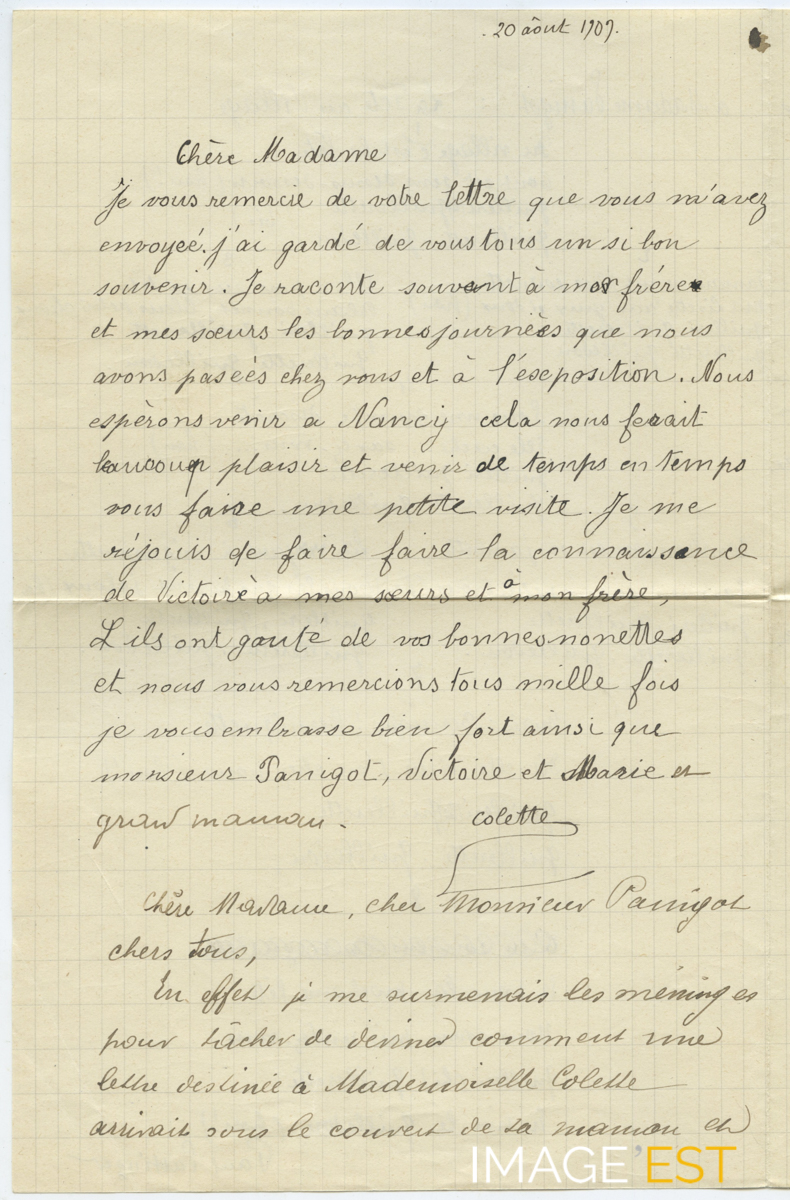 20 âout 1909.
Chère Madame
Je vous remercie de votre lettre que vous m'avez
envoyeé. j'ai gardé de vous tous un si bon
souvenir. Je raconte souvent à mon frére
et mes sœurs les bonnes journèes que nous
avons paseés chez vous et à l'exposition. Nous
espèrons venir a Nancy cela nous ferait
baucoup plaisir et venir de temps en temps
vous faire une petite visite. Je me
réjouis de faire faire la connaissance
de Victoire à mes sœurs et à mon frère,
ils ont gouté de vos bonnes nonettes
et nous vous remercions tous mille fois
je vous embrasse bien fort ainsi que
monsieur Panigot, Victoire et Marie et
grand maman. Colette
Chère Madame, cher Monsieur Panigot
chers tous,
En effet je me surmenais les méninges
pour tâcher de deviner comment une
lettre destinée à Mademoiselle Colette
arrivait sous le couvert de sa maman et
IMAGE'EST